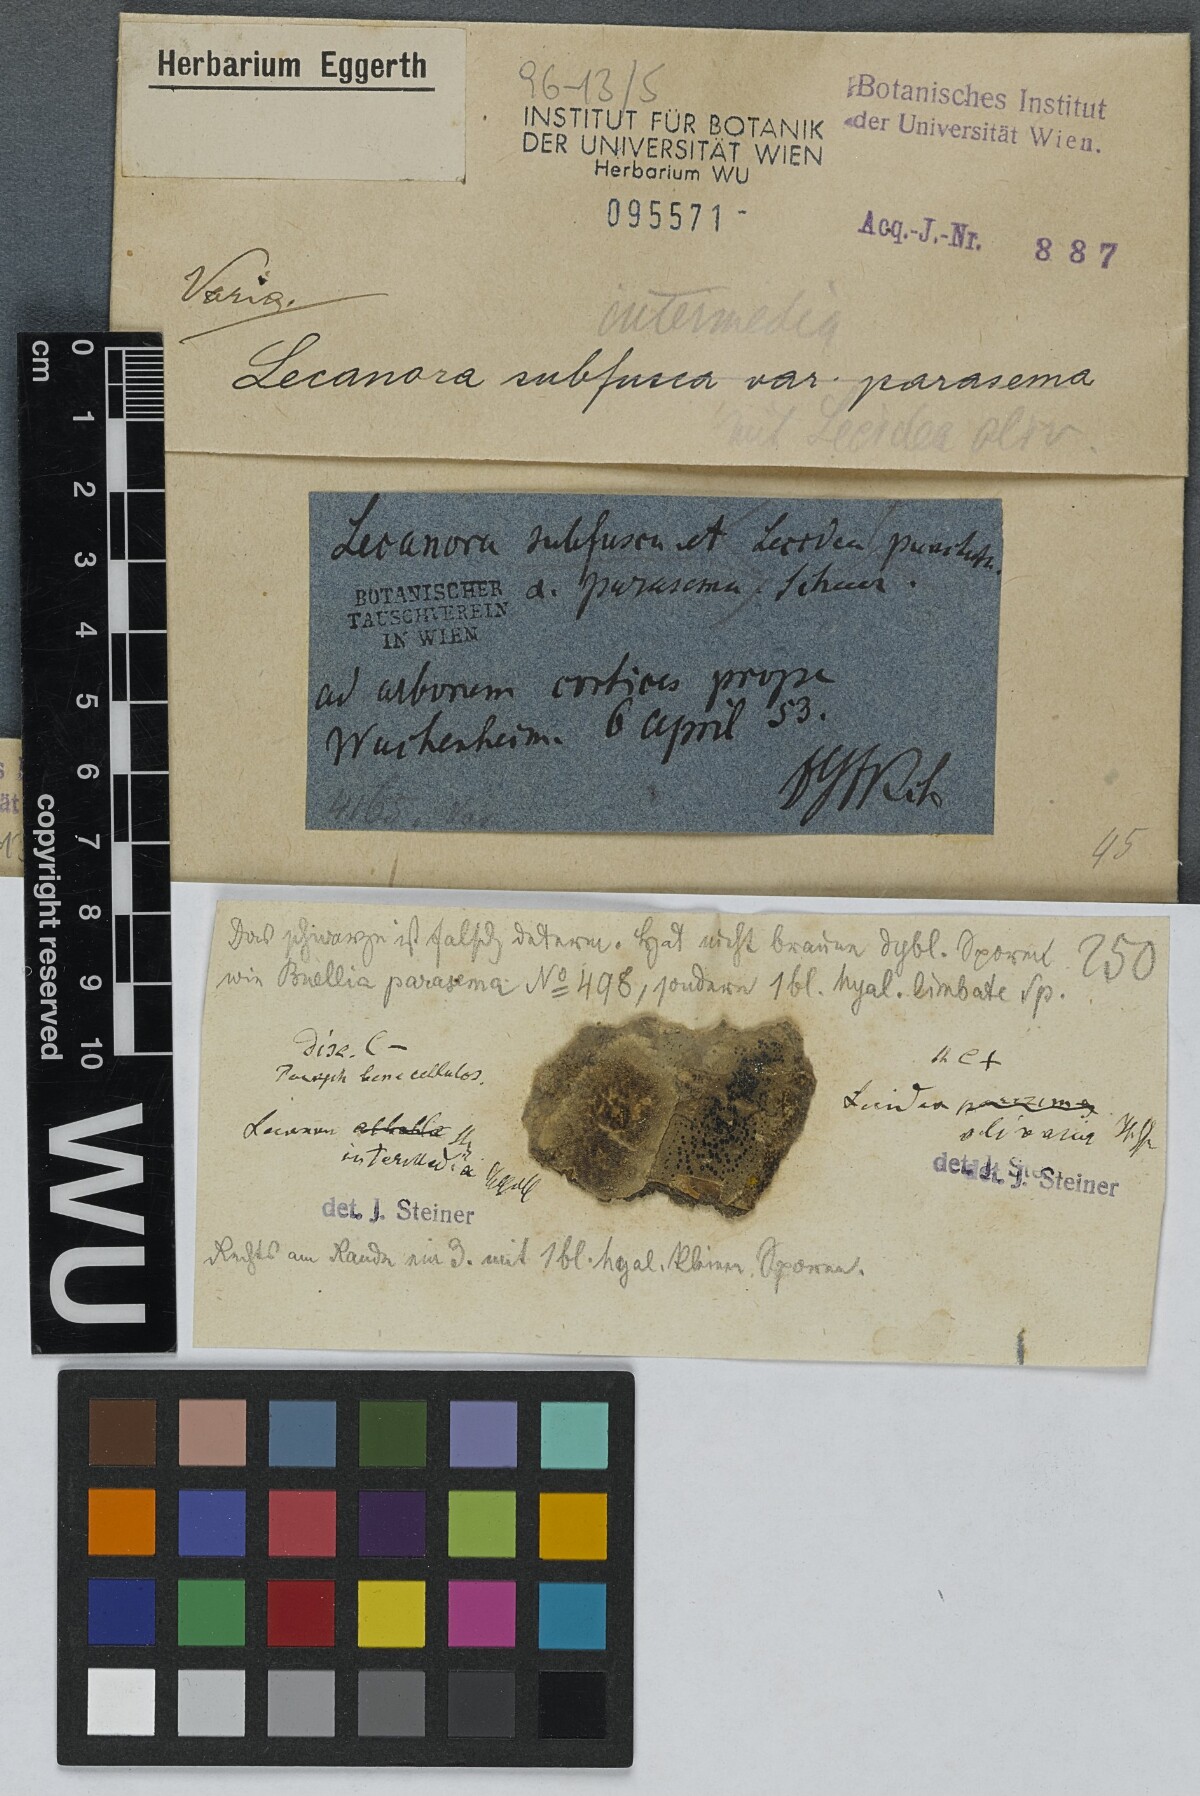 Herbarium Eggerth
96-13/5
INSTITUT FÜR BOTANIK
DER UNIVERSITÄT WIEN
Herbarium WU
095571
Botanisches Institut
der Universität Wien.
Acq.-J.-Nr. 887
Varia.
intermedia
Lecanora subfusca var. parasema
mit Lecidea oliv.
Lecanora subfusca et Lecidea
a. parasema Schaer.
BOTANISCHER
TAUSCHVEREIN
IN WIEN
ad arborum cortices prope
Wachenheim. 6 April 53.
45
Das schwarze ist falsch determ. Hat nicht braune dybl. Sporen
wie Buellia parasema No 498, sondern 1bl. hyal. limbate Sp.
250
Disc. C -
Lecanora
intermedia
det. J. Steiner
C +
Lecidea parasema
olivacea
det. J. Steiner
Rechts am Rande ein 3. mit 1bl. hyal. kleinen Sporen.
cm
0
1
2
3
4
5
6
7
8
9
10
copyright reserved
WU